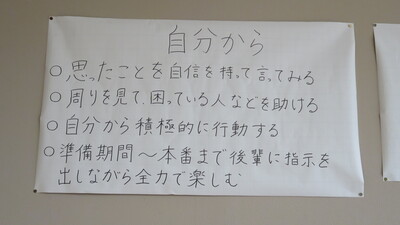 自分から
○思ったことを自信を持って言ってみる
○周りを見て、困っている人などを助ける
○自分から積極的に行動する
○準備期間〜本番まで後輩に指示を
出しながら全力で楽しむ